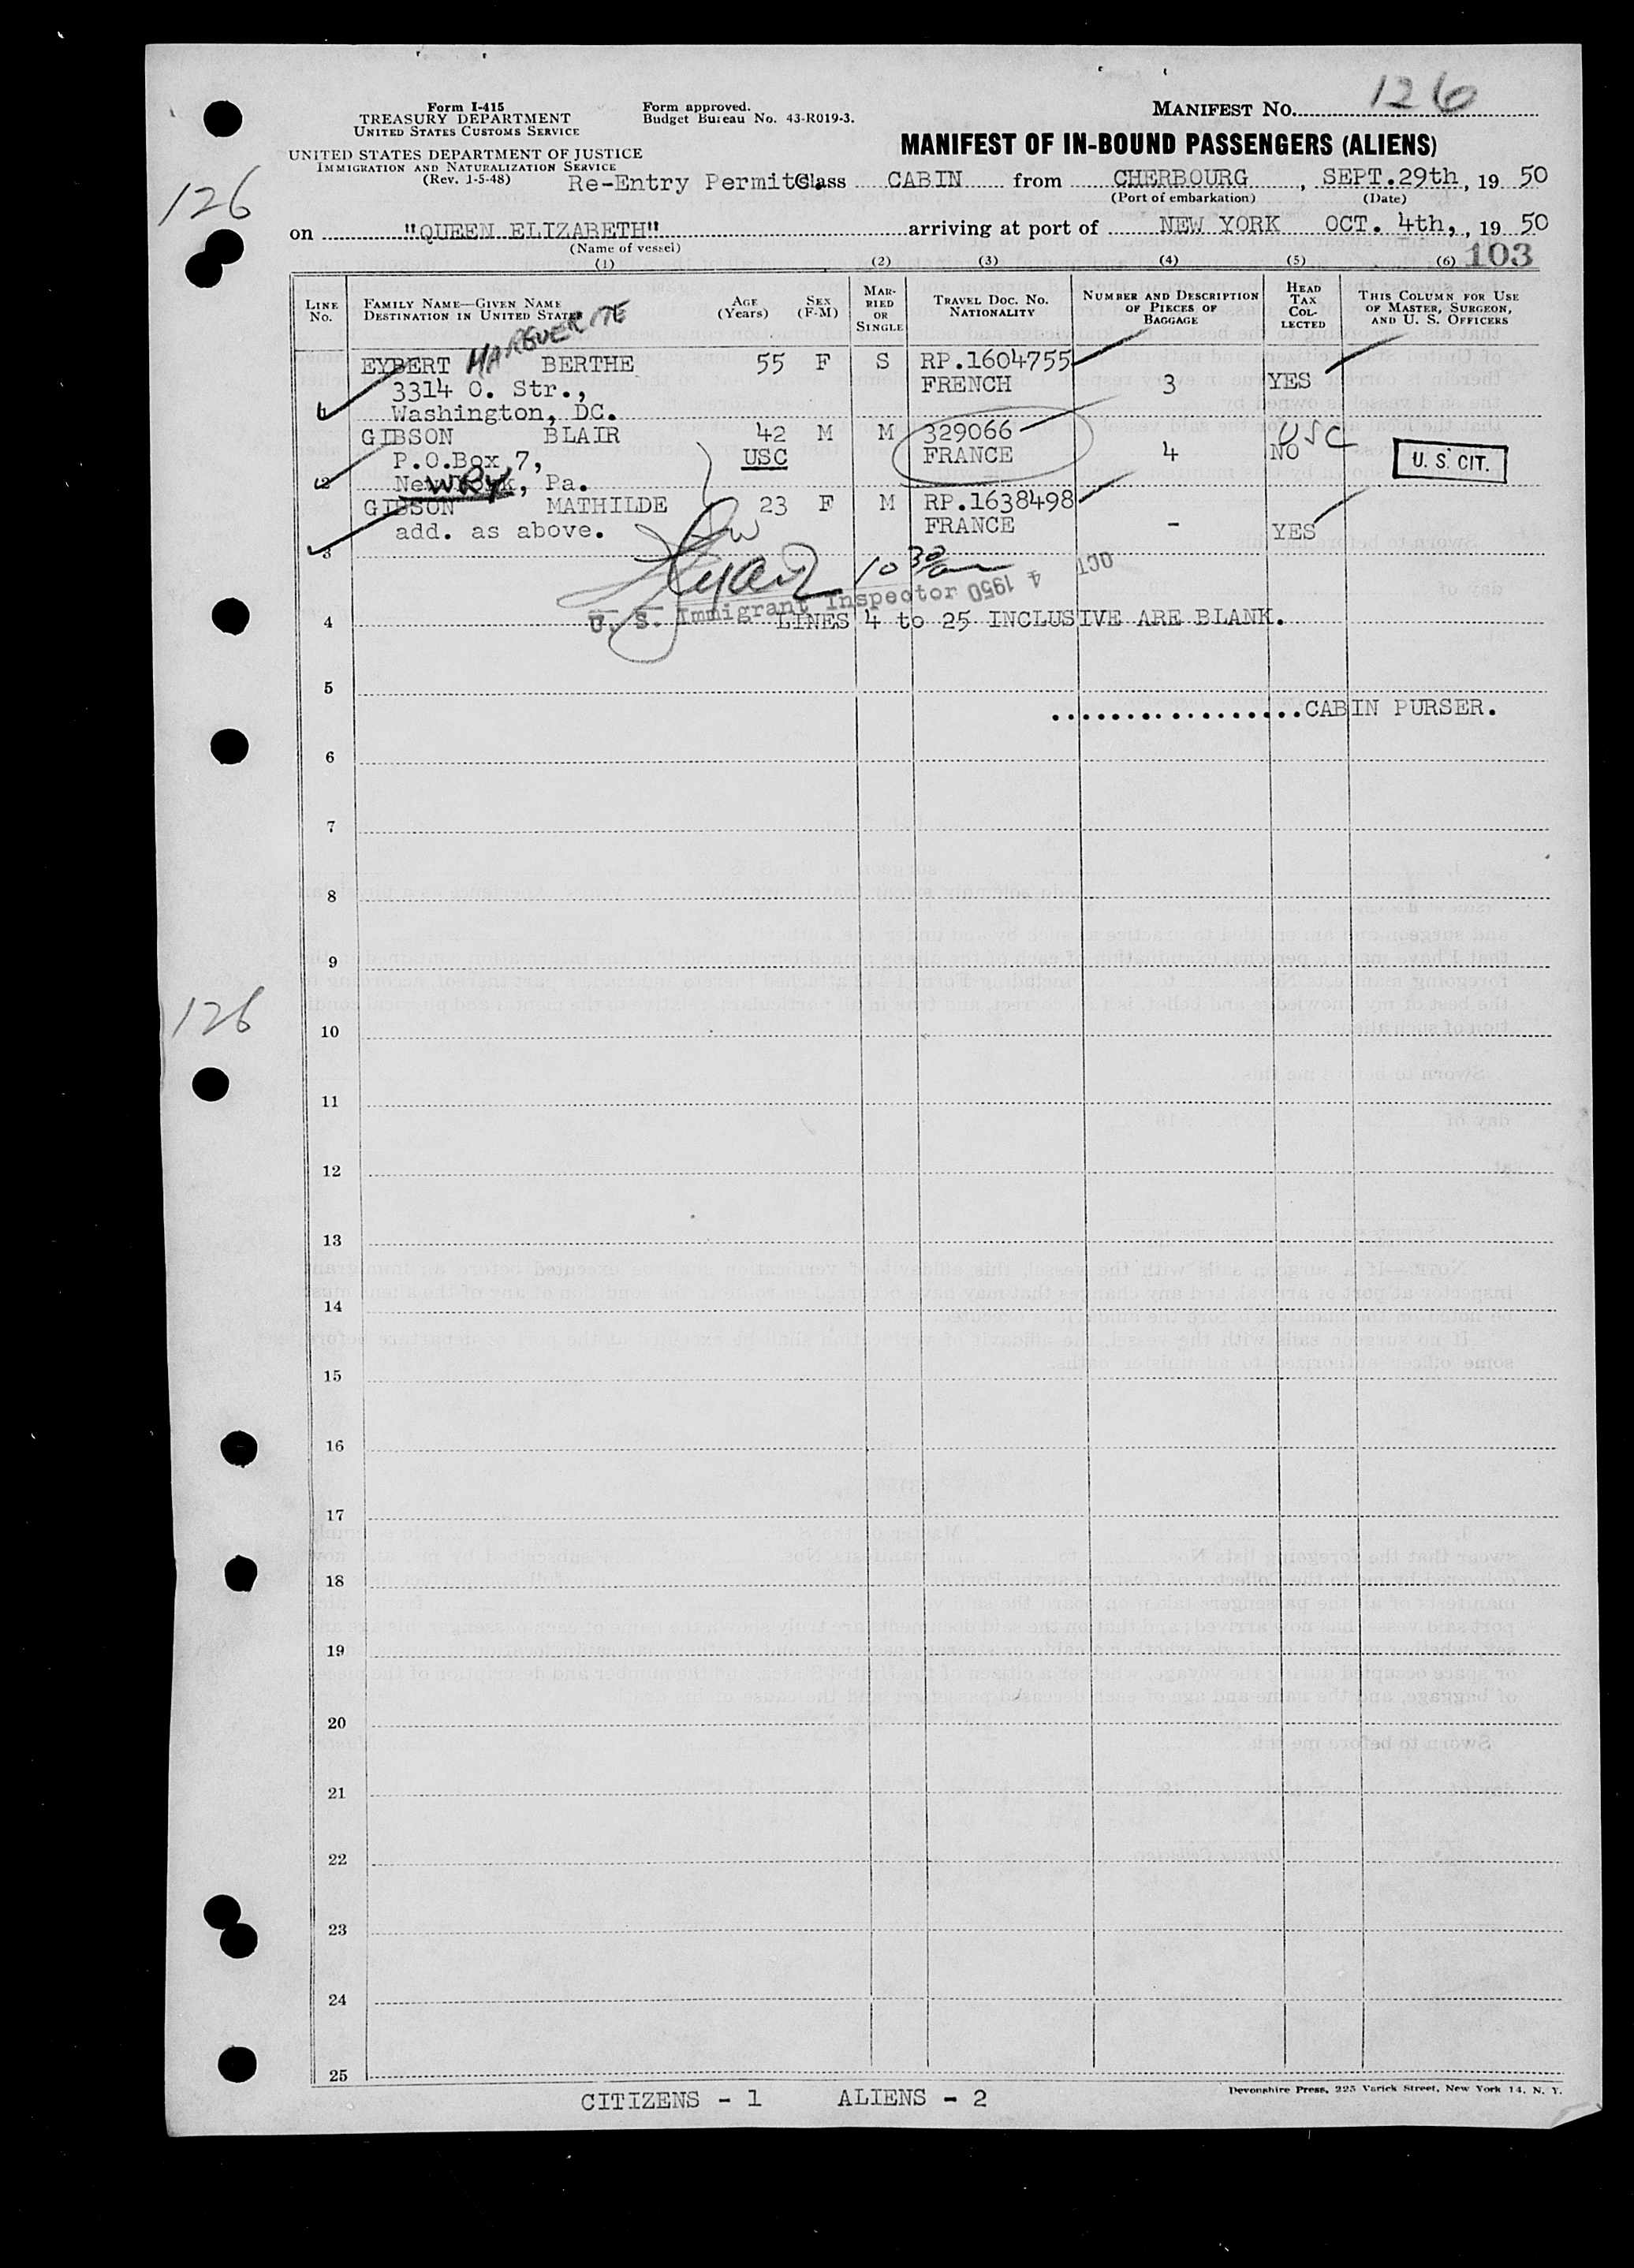 Form I-415
TREASURY DEPARTMENT
UNITED STATES CUSTOMS SERVICE
Form approved.
Budget Bureau No. 43-R019-3.
MANIFEST NO. 126
MANIFEST OF IN-BOUND PASSENGERS (ALIENS)
UNITED STATES DEPARTMENT OF JUSTICE
IMMIGRATION AND NATURALIZATION SERVICE
(Rev. 1-5-48)
126
Re-Entry Permits. Class CABIN from CHERBOURG, SEPT.29th, 19 50
(Port of embarkation) (Date)
on "QUEEN ELIZABETH" arriving at port of NEW YORK OCT. 4th,, 19 50
(Name of vessel)
103
(1) (2) (3) (4) (5) (6)
LINE No. FAMILY NAME—GIVEN NAME DESTINATION IN UNITED STATES AGE (Years) SEX (F-M) MARRIED OR SINGLE TRAVEL DOC. NO. NATIONALITY NUMBER AND DESCRIPTION OF PIECES OF BAGGAGE HEAD TAX COLLECTED THIS COLUMN FOR USE OF MASTER, SURGEON, AND U. S. OFFICERS
EYBERT MARGUERITE BERTHE 55 F S RP.1604755
3314 O. Str., FRENCH 3 YES
1 Washington, DC.
GIBSON BLAIR 42 M M 329066 USC
P.O.Box 7, USC FRANCE 4 NO U. S. CIT.
2 New York, Pa. WRY
GIBSON MATHILDE 23 F M RP.1638498
add. as above. FRANCE - YES
3
10 30 am
OCT 4 1950
U. S. Immigrant Inspector
4 LINES 4 to 25 INCLUSIVE ARE BLANK.
5
.................CABIN PURSER.
6
7
8
9
126
10
11
12
13
14
15
16
17
18
19
20
21
22
23
24
25
CITIZENS - 1 ALIENS - 2
Devonshire Press, 225 Varick Street, New York 14, N. Y.